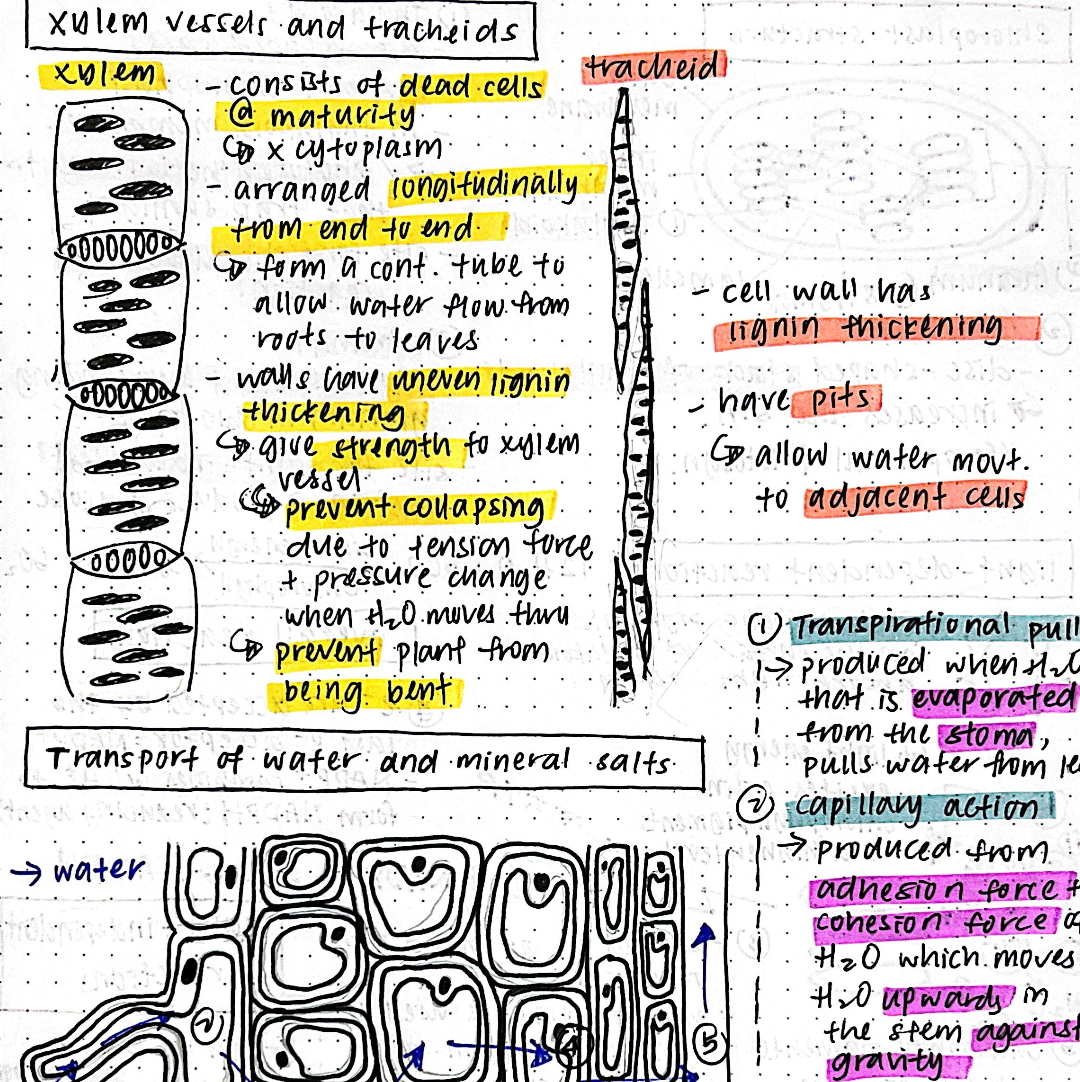 xylem vessels and tracheids
xylem
- consists of dead cells
@ maturity
↳ x cytoplasm
- arranged longitudinally
from end to end.
↳ form a cont. tube to
allow water flow from
roots to leaves
- walls have uneven lignin
thickening
↳ give strength to xylem
vessel
↳ prevent collapsing
due to tension force
+ pressure change
when H₂O moves thru
↳ prevent plant from
being bent
tracheid
- cell wall has
lignin thickening
- have pits
↳ allow water movt.
to adjacent cells
Transport of water and mineral salts
→ water
②
④
⑤
① Transpirational pull
→ produced when H₂O
that is evaporated
from the stoma,
pulls water from
② capillary action
→ produced from
adhesion force +
cohesion force
H₂O which moves
H₂O upwards in
the stem against
gravity